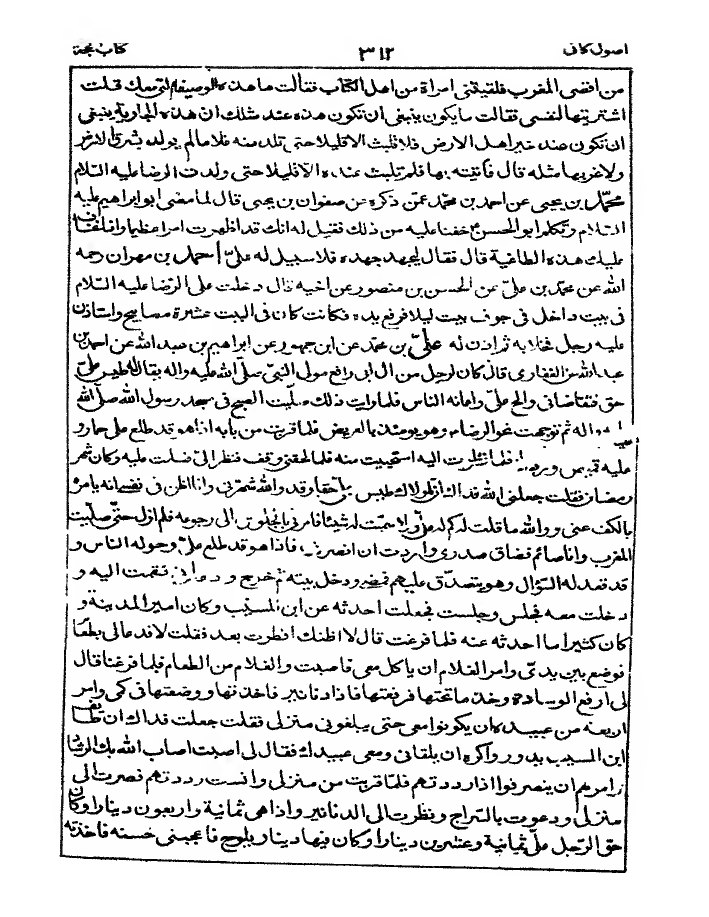 اصول كاف ٣١٢ كتاب حجة
من اقصى المغرب فلقيتنى امراة من اهل الكتاب فقالت ما هذه الوصيفة التى معك قلت
اشتريتها لنفسى فقالت ما يكون ينبغى ان تكون هذه عند مثلك ان هذه الجارية ينبغى
ان تكون عند خير اهل الارض فلا تلبث الا قليلا حتى تلد منه غلاما لم يولد بشرق الارض
ولا غربها مثله قال فاتيته بها فلم تلبث عنده الا قليلا حتى ولدت الرضا عليه السّلام
محمّد بن يحيى عن احمد بن محمّد عمّن ذكره عن صفوان بن يحيى قال لما مضى ابو ابراهيم عليه
السّلام وتكلم ابو الحسن ع خفنا عليه من ذلك فقيل له انك قد اظهرت امرا عظيما وانا نخاف
عليك هذه الطاغية قال فقال ليجهد جهده فلا سبيل له علىّ احمد بن مهران رحمه
الله عن محمّد بن علىّ عن الحسن بن منصور عن اخيه قال دخلت على الرّضا عليه السّلام
فى بيت داخل فى جوف بيت ليلا فرفع يده فكانت كان فى البيت عشرة مصابيح واستاذن
عليه رجل فخلا يده ثم اذن له علىّ بن محمّد عن ابن جمهور عن ابراهيم بن عبد الله عن احمد بن
عبد الله عن الغفارى قال كان لرجل من ال ابى رافع مولى النبىّ صلّى الله عليه واله يقال له طيس علىّ
حق فتقاضانى والح علىّ واعانه الناس فلما رايت ذلك صلّيت الصبح فى مسجد رسول الله صلّى الله
عليه واله ثم توجهت نحو الرضا ع وهو يومئذ بالعريض فلما قربت من بابه اذا هو قد طلع على حمار و
عليه قميص ورداء فلما نظرت اليه استحييت منه فلما لحقنى وقف فنظر الىّ فسلمت عليه وكان شهر
رمضان فقلت جعلنى الله فداك ان لمولاك طيس علىّ حقا وقد والله شهرنى وانا اظن فى نفسى انه يامره
بالكف عنى ووالله ما قلت له كم له علىّ ولا سمّيت له شيئا فامرنى بالجلوس الى رجوعه فلم ازل حتى صلّيت
المغرب وانا صائم فضاق صدرى واردت ان انصرف فاذا هو قد طلع علىّ وحوله الناس و
قد قعد له السّؤال وهو يتصدّق عليهم فمضى ودخل بيته ثم خرج و دعانى فقمت اليه و
دخلت معه فجلس وجلست فجعلت احدثه عن ابن المسيّب وكان امير المدينة و
كان كثيرا ما احدثه عنه فلما فرغت قال لا اظنك افطرت بعد فقلت لا فدعا لى بطعام
فوضع بين يدىّ وامر الغلام ان ياكل معى فاصبت والغلام من الطعام فلما فرغنا قال
لى ارفع الوسادة وخذ ما تحتها فرفعتها فاذا دنانير فاخذتها ووضعتها فى كمى وامر
اربعة من عبيده ان يكونوا معى حتى يبلغونى منزلى فقلت جعلت فداك ان طائف
ابن المسيب يدور واكره ان يلقانى ومعى عبيدك فقال لى اصبت اصاب الله بك الرشاد
وامرهم ان ينصرفوا اذا رددتهم فلمّا قربت من منزلى وانست رددتهم فصرت الى
منزلى ودعوت بالسّراج ونظرت الى الدنانير واذا هى ثمانية واربعون دينارا وكان
حق الرّجل علىّ ثمانية وعشرين دينارا وكان فيها دينار يلوح فاعجبنى حسنه فاخذته